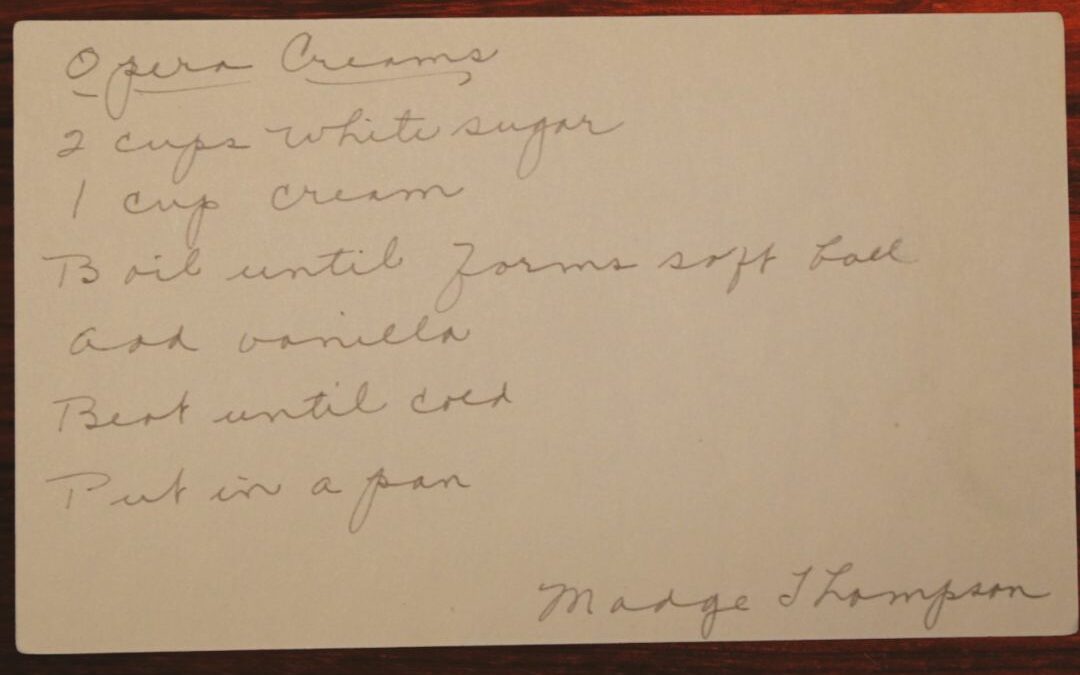 Opera Creams
2 cups white sugar
1 cup cream
Boil until forms soft ball
add vanilla
Beat until cold
Put in a pan
Madge Thompson